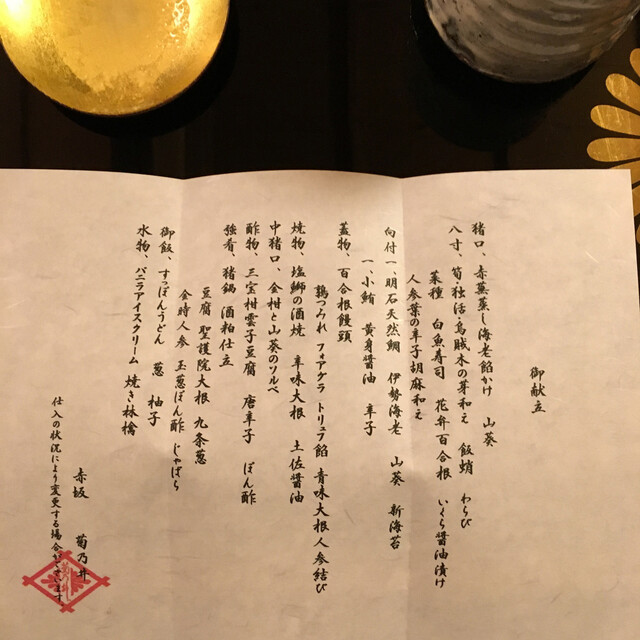 御献立
猪口、赤蕪蒸し海老餡かけ 山葵
八寸、筍・独活・烏賊木の芽和え 飯蛸 わらび
菜種 白魚寿司 花弁百合根 いくら醤油漬け
人参葉の辛子胡麻和え
向付一、明石天然鯛 伊勢海老 山葵 新海苔
一、小鮪 黄身醤油 辛子
蓋物、百合根饅頭
鶉つみれ フォアグラ・トリュフ餡 青味大根人参結び
焼物、塩鰤の酒焼 辛味大根 土佐醤油
中猪口、金柑と山葵のソルベ
酢物、三宝柑雲子豆腐 唐辛子 ぽん酢
強肴、猪鍋 酒粕仕立
豆腐 聖護院大根 九条葱
金時人参 玉葱ぽん酢 じゃばら
御飯、すっぽんうどん 葱 柚子
水物、バニラアイスクリーム 焼き林檎
仕入の状況により変更する場合がございます
赤坂 菊乃井